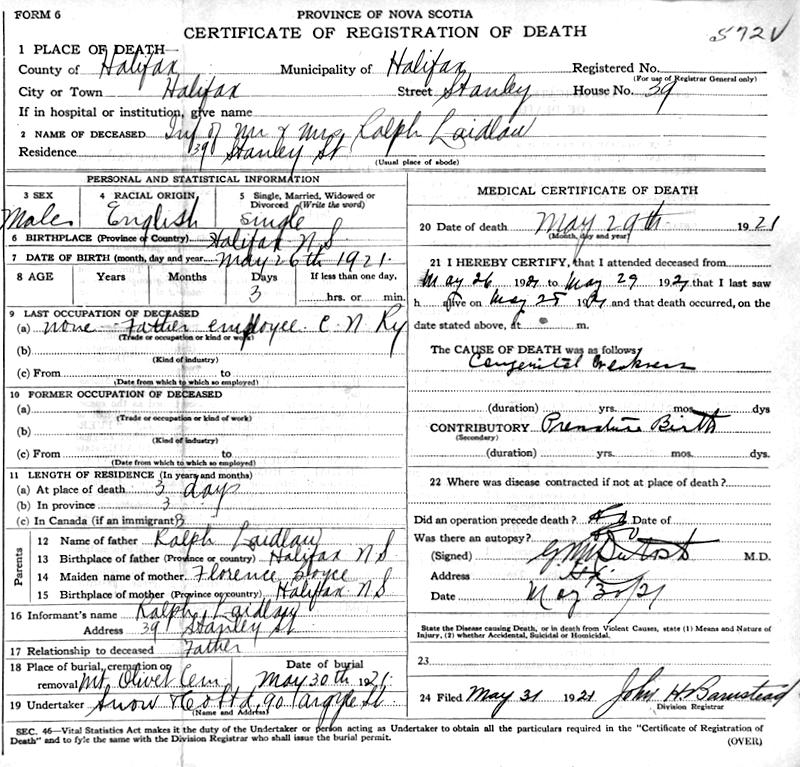 FORM 6
PROVINCE OF NOVA SCOTIA
CERTIFICATE OF REGISTRATION OF DEATH
572
1 PLACE OF DEATH—
County of Halifax Municipality of Halifax Registered No.
(For use of Registrar General only)
City or Town Halifax Street Stanley House No. 39
If in hospital or institution, give name
2 NAME OF DECEASED Inf of Mr & Mrs Ralph Laidlaw
Residence 39 Stanley St
(Usual place of abode)
PERSONAL AND STATISTICAL INFORMATION
3 SEX 4 RACIAL ORIGIN 5 Single, Married, Widowed or Divorced (Write the word)
Male English Single
6 BIRTHPLACE (Province or Country) Halifax N S
7 DATE OF BIRTH (month, day and year May 26th 1921
8 AGE Years Months Days If less than one day,
3 hrs. or min.
9 LAST OCCUPATION OF DECEASED
(a) none Father employee C. N Ry
(Trade or occupation or kind or work)
(b)
(Kind of industry)
(c) From to
(Date from which to which so employed)
10 FORMER OCCUPATION OF DECEASED
(a)
(Trade or occupation or kind of work)
(b)
(Kind of industry)
(c) From to
(Date from which to which so employed)
11 LENGTH OF RESIDENCE (In years and months)
(a) At place of death 3 days
(b) In province 3
(c) In Canada (if an immigrant) 3
Parents
12 Name of father Ralph Laidlaw
13 Birthplace of father (Province or country) Halifax N S
14 Maiden name of mother Florence
15 Birthplace of mother (Province or country) Halifax N S
16 Informant's name Ralph Laidlaw
Address 39 Stanley St
17 Relationship to deceased Father
18 Place of burial, cremation or Date of burial
removal Mt Olivet Cem May 30th 1921
19 Undertaker Snow & Co Ltd, 90 Argyle St
(Name and Address)
MEDICAL CERTIFICATE OF DEATH
20 Date of death May 29th 1921
(Month, day and year)
21 I HEREBY CERTIFY, that I attended deceased from
May 26 1921 to May 29 1921 that I last saw
h alive on May 28 1921 and that death occurred, on the
date stated above, at m.
The CAUSE OF DEATH was as follows:
Congenital Weakness
(duration) yrs. mos. dys
CONTRIBUTORY Premature Birth
(Secondary)
(duration) yrs. mos. dys.
22 Where was disease contracted if not at place of death?
Did an operation precede death? No Date of
Was there an autopsy? No
(Signed) M.D.
Address Hfx
Date May 30/21
State the Disease causing Death, or in death from Violent Causes, state (1) Means and Nature of
Injury, (2) whether Accidental, Suicidal or Homicidal.
23
24 Filed May 31 1921 John H Barnstead
Division Registrar
SEC. 46—Vital Statistics Act makes it the duty of the Undertaker or person acting as Undertaker to obtain all the particulars required in the "Certificate of Registration of
Death" and to fyle the same with the Division Registrar who shall issue the burial permit.
(OVER)